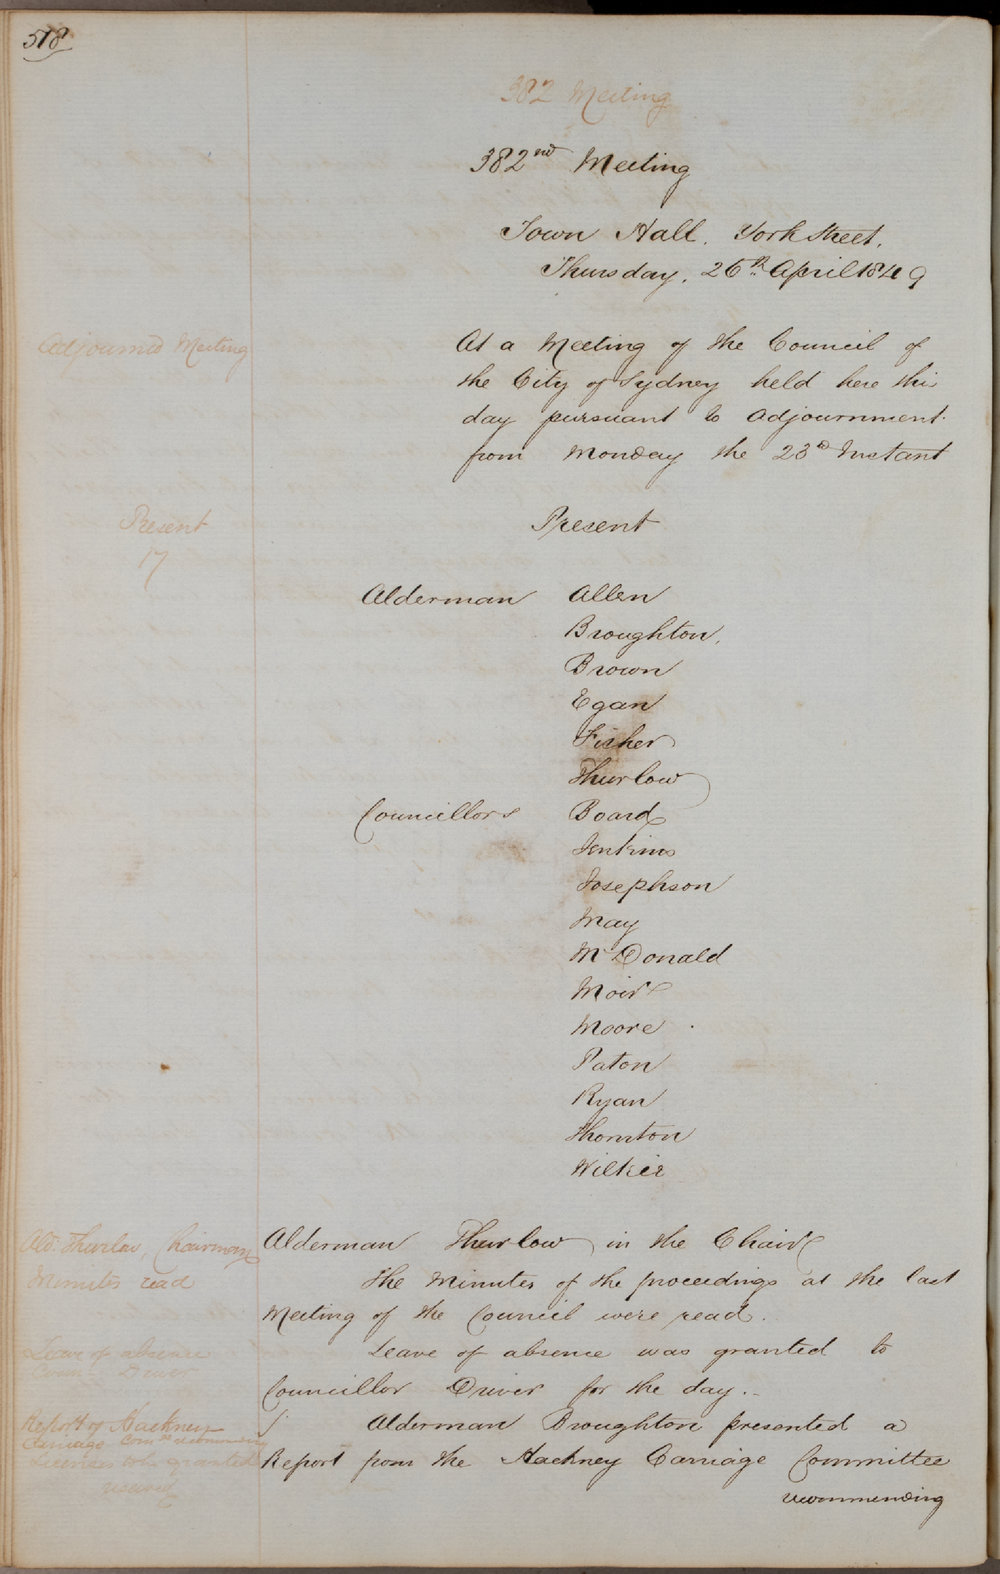 518
382 Meeting
382nd Meeting
Town Hall. York Street.
Thursday. 26th April 1849
Adjourned Meeting
At a Meeting of the Council of
the City of Sydney held here this
day pursuant to Adjournment
from Monday the 23rd Instant
Present
17
Present
Alderman Allen
Broughton,
Brown
Egan
Fisher
Thurlow
Councillors Board
Jenkins
Josephson
May
McDonald
Moir
Moore
Paton
Ryan
Thornton
Wilkie
Ald. Thurlow, Chairman
Alderman Thurlow in the Chair
Minutes read
The Minutes of the proceedings at the last
Meeting of the Council were read.
Leave of absence
Coun. Driver
Leave of absence was granted to
Councillor Driver for the day.
Report of Hackney
Carriage Comee recommending
Licenses to be granted
received
Alderman Broughton presented a
Report from the Hackney Carriage Committee
recommending